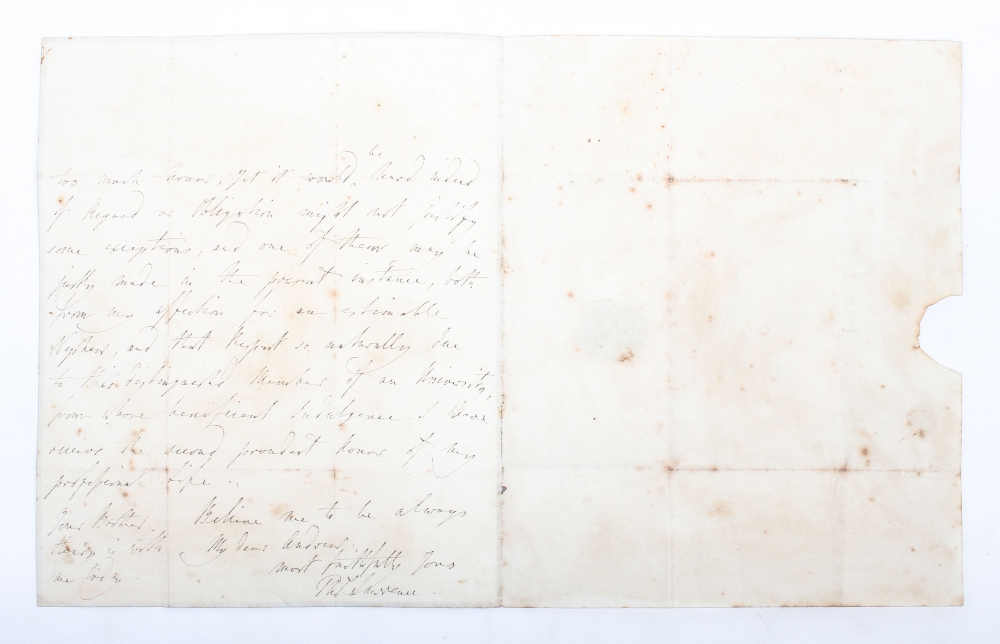 too much honor, yet it would be hard indeed
if Regard or Obligation might not justify
some exceptions, and one of them may be
justly made in the present instance; both
from my affection for an estimable
Nephew, and that Respect so naturally due
to this distinguished Member of an University,
from whose beneficent Indulgence I have
receiv'd the second proudest honor of my
professional Life.
Believe me to be always
My dear Andrew,
most faithfully Yours
Thos Lawrence.
Your Brother
is with
me today